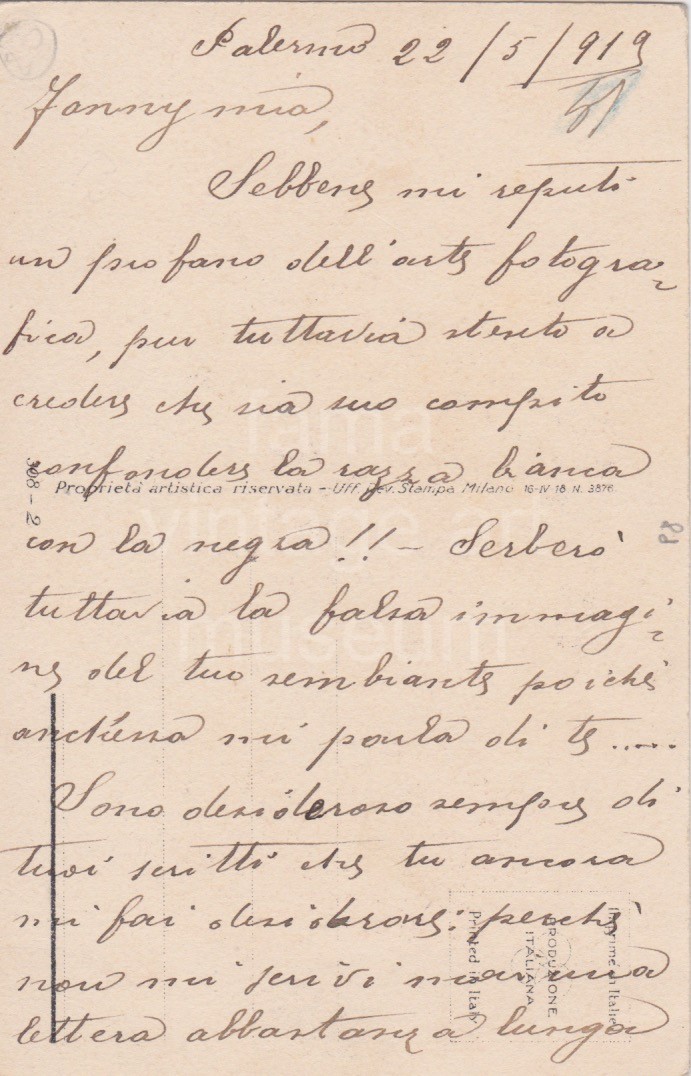 Palermo 22/5/919
Fanny mia,
Sebbene mi reputi
un profano dell'arte fotogra-
fica, pur tuttavia stento a
credere che sia suo compito
confondere la razza bianca
Proprietà artistica riservata - Uff. Rev. Stampa, Milano 16-IV-18 N. 3876
308-2
con la negra!! - Serberò
tuttavia la falsa immagi-
ne del tuo sembiante poichè
anch'essa mi parla di te .....
Sono desideroso sempre di
tuoi scritti che tu ancora
mi fai desiderare: perchè
non mi scrivi
lettera abbastanza lunga
Imprimé en Italie
PRODUZIONE ITALIANA
Printed in Italy
88
fama
vintage
museum